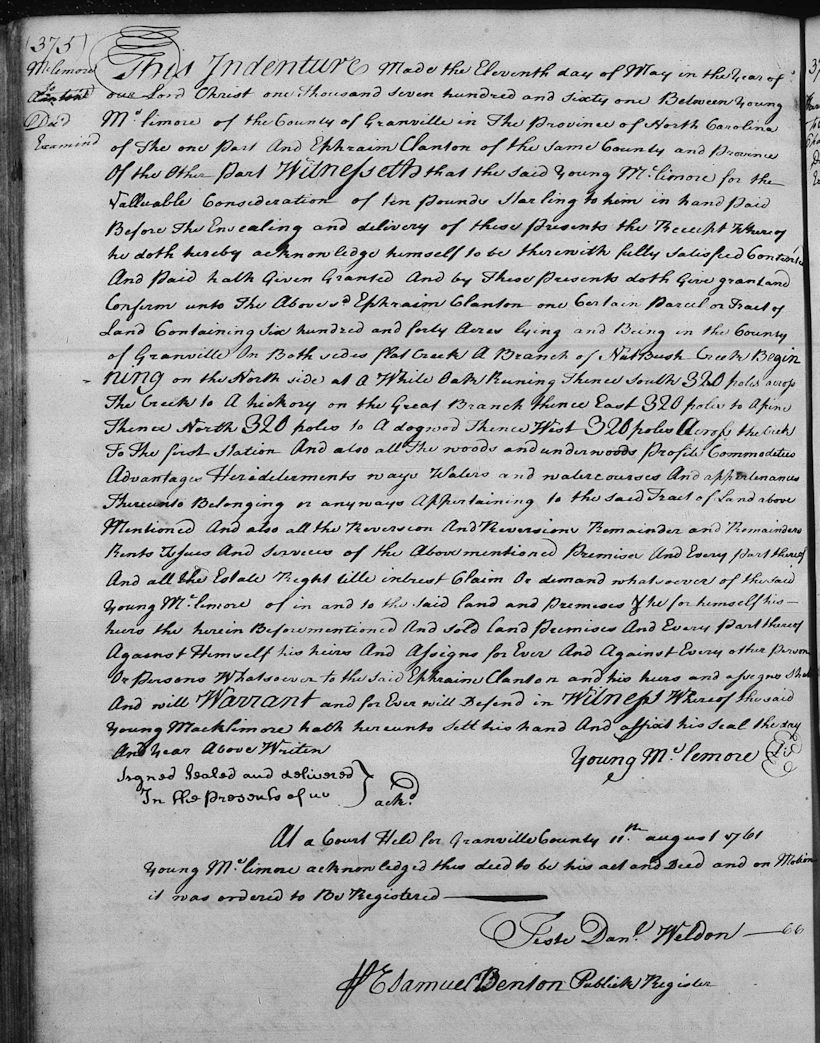 (375)
Mclemore
to
Clanton
Deed
Examind
This Indenture Made the Eleventh day of May in the Year of
our Lord Christ one Thousand seven hundred and sixty one Between Young
Mc.limore of the County of Granville in The Province of North Carolina
of The one Part And Ephraim Clanton of the same County and Province
Of the Other Part Witnesseth that the said Young Mc.limore for the
Valluable Consideration of ten Pounds Starling to him in hand Paid
Before The Ensealing and delivery of these Presents the Receept Whereof
he doth hereby acknowledge himself to be therewith fully satisfied Contented
And Paid hath Given Granted And by These Presents doth Give grant and
Confirm unto The Above sd. Ephraim Clanton one Certain Parcel or Tract of
Land Containing Six hundred and forty Acres lying and Being in the County
of Granville On Both sides flat Creek A Branch of NutBush Creek Begin
ning on the North side at A White Oak Runing Thence South 320 poles across
The Creek to A hickory on the Great Branch thence East 320 poles to A pine
Thence North 320 poles to A dogwood Thence West 320 poles Across the Creek
To The first Station And also all The woods and underwoods Profits Commodeties
Advantages Heridelerments ways Waters and watercourses And appertenances
Thereunto Belonging or anyways Appertaining to the said Tract of Land above
Mentioned And also all the Reversion And Reversions Remainder and Remainders
Rents Issues And services of the Above mentioned Premises And Every part thereof
And all the Estate Right title intrest Claim Or demand whatsoever of the said
Young Mc.limore of in and to the said land and Premeses & he for himself his
heirs the herein Beforementioned And sold land Premises And Every Part thereof
Against Himself his heirs And Assigns for Ever And Against Every other Person
Or Persons Whatsoever to the said Ephraim Clanton and his heirs and assegns Shall
And will Warrant and for Ever will Defend in Witness Whereof the said
Young Macklimore hath hereunto Sett his hand And affixt his seal the day
And Year Above Writen
Young Mc.lemore
Signed Sealed and delivered
In the Presents of us
ackd.
At a Court Held for Granville County 11th. august 1761
Young Mc.limore acknowledged this deed to be his act and Deed and on Motion
it was ordered to Be Registered
Teste Danl. Weldon
Samuel Benton Publick Register